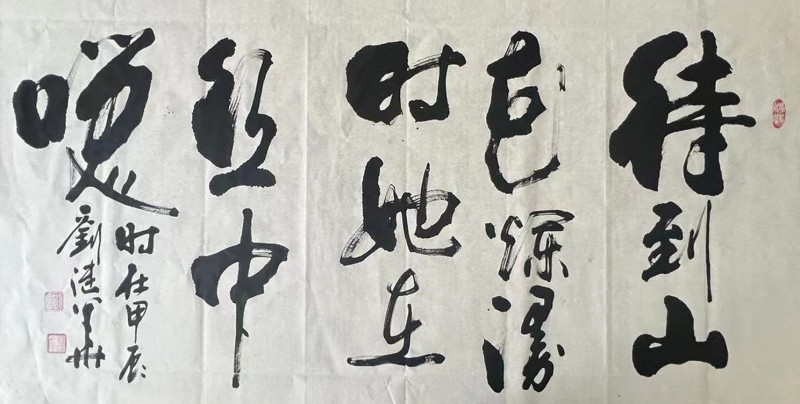 待到山
花烂漫
时她在
丛中
咲
时在甲辰
劉